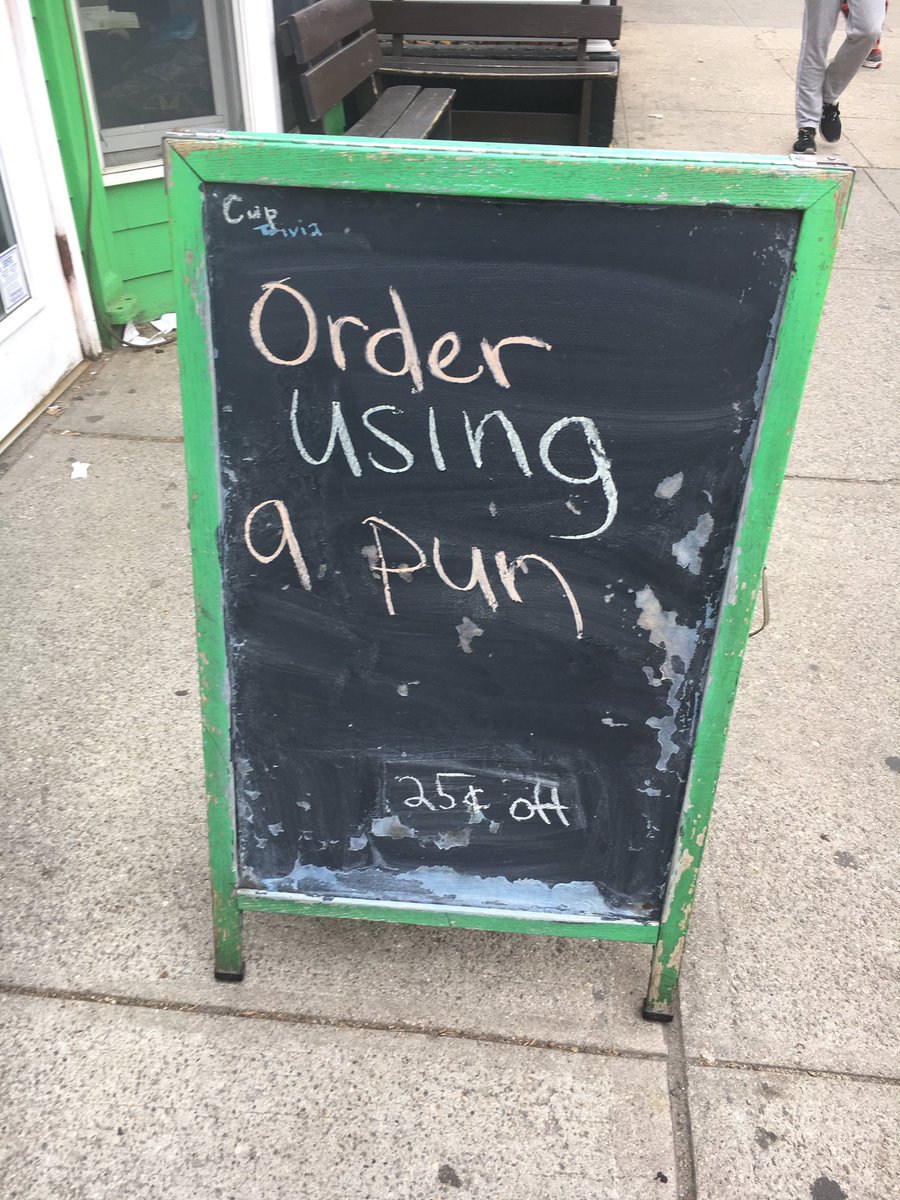 Cup
Trivia
Order
using
a pun
25¢ off